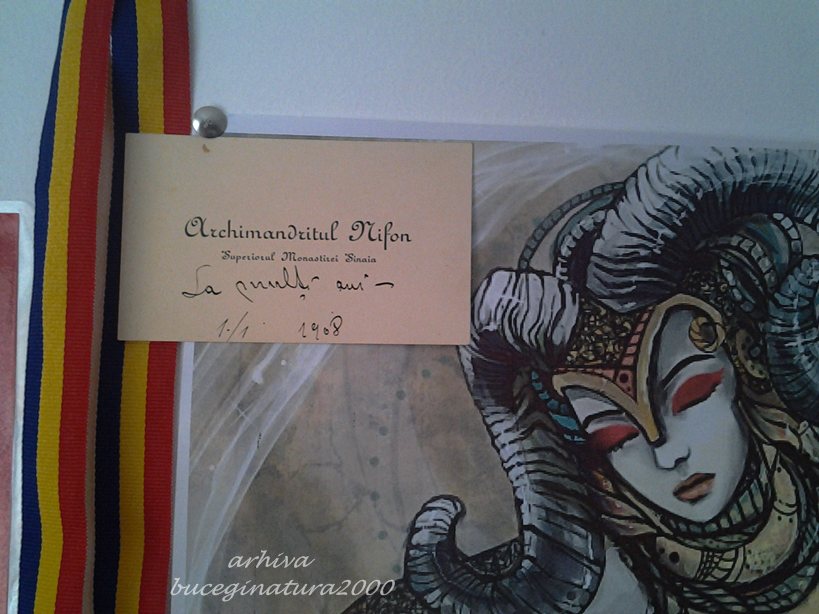 Archimandritul Nifon
Superiorul Monastirei Sinaia
La mulți ani –
1/1 1908
arhiva
buceginatura2000